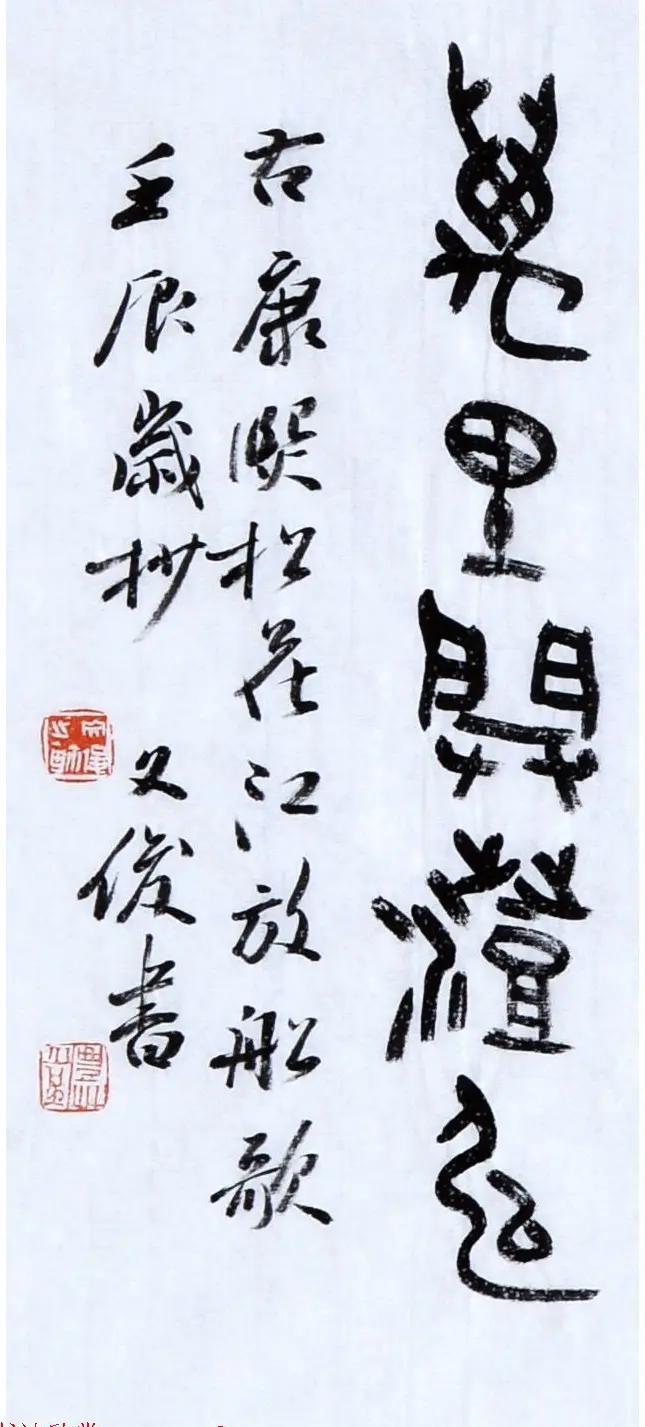 萬里開澄泓
右康熙松花江放船歌
壬辰歲杪 文俊書